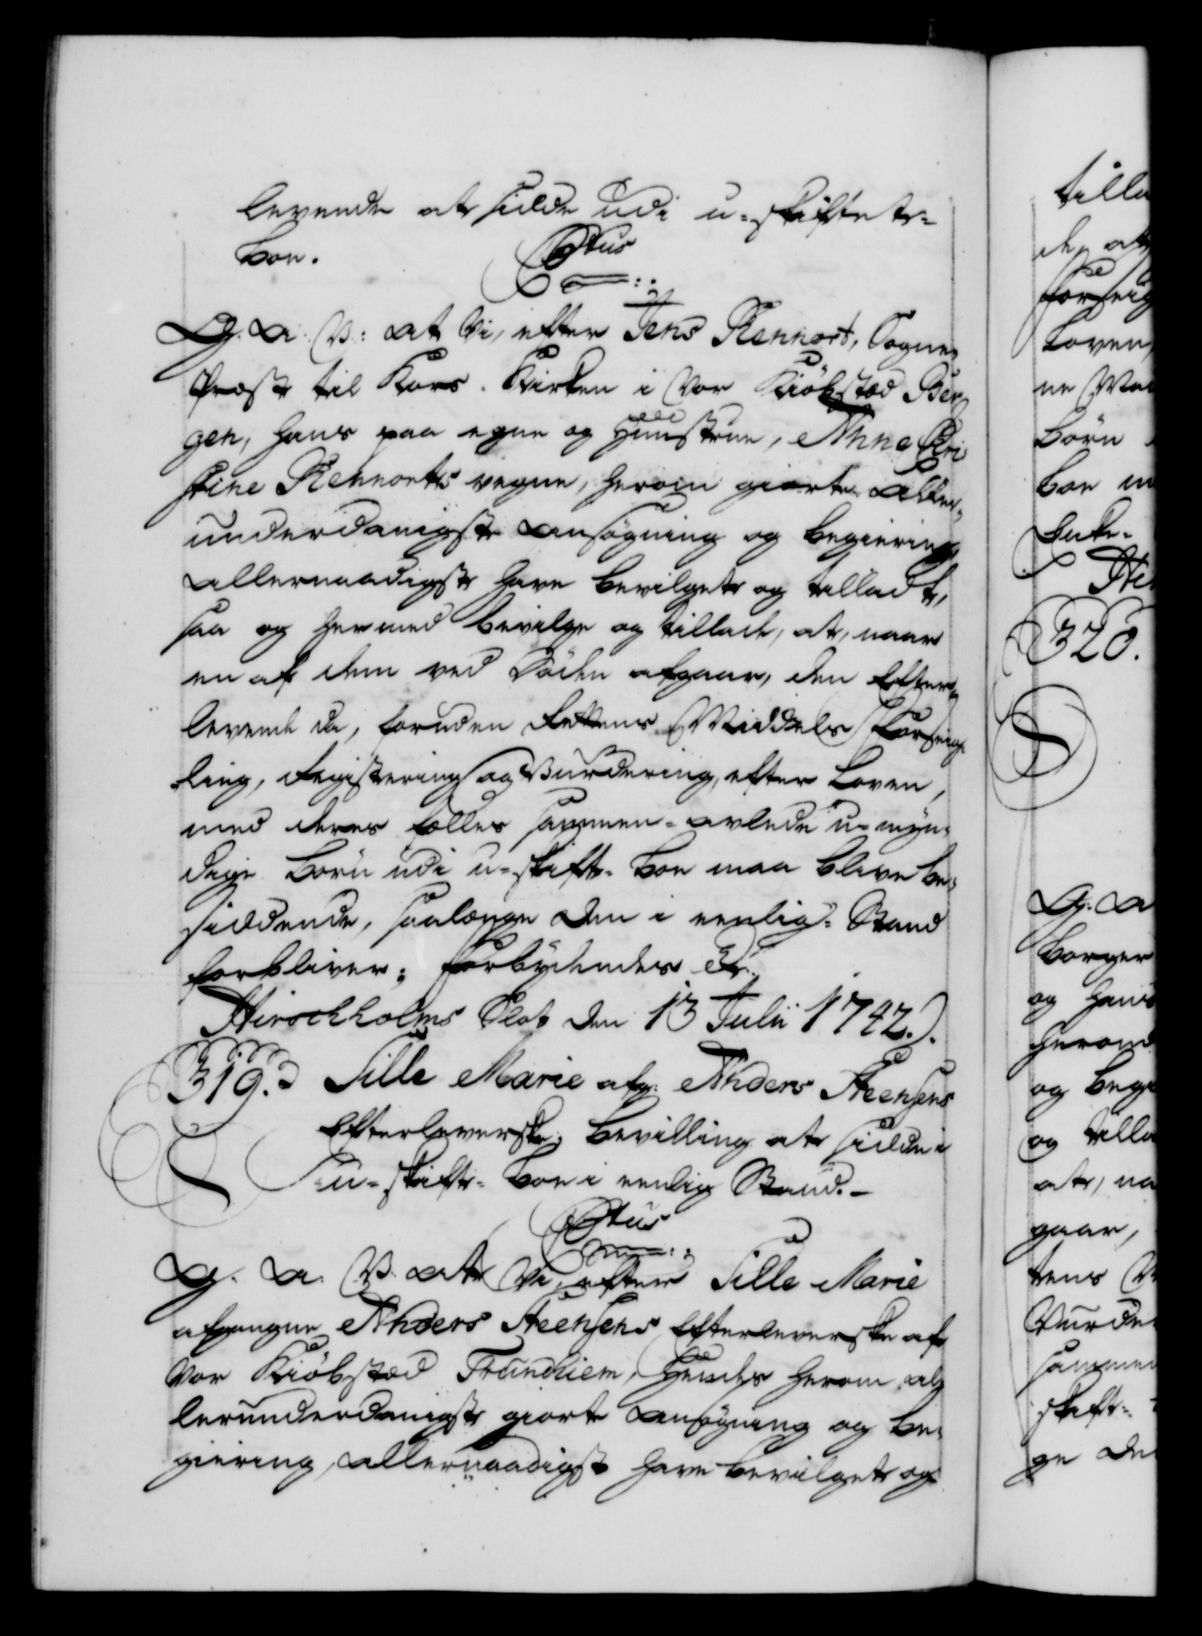 levende at sidde udi u-skiftet-
Boe.
G. A. V: at Vi, efter Jens Rennort, Sogne-
Præst til Kors-Kirken i Vor Kiöbstæd Ber-
gen, hans paa egne og Hustrue, Anne Chri-
stine Rennorts vegne, herom giorte aller-
underdanigste Ansøgning og begiering,
allernaadigst have bevilget og tilladt,
saa og hermed bevilge og tillade, at, naar
en af dem ved Døden afgaar, den Efter-
levende da, foruden Rettens Middels Forseig-
ling, Registering og Vurdering, efter Loven,
med deres fælles sammen-avlede u-myn-
dige Börn udi u-skift-Boe maa blive be-
siddende, saalænge den i eenlig-Stand
forbliver; Forbydendes &c.
Hirschholms Slot den 13 Julii 1742.
319. Sille Marie afg. Anders Steensens
Efterleverske, Bevilling at sidde i
u-skift-Boe i eenlig Stand.-
G. A. V. at Vi, efter Sille Marie
afgangne Anders Steensens Efterleverske af
Vor Kiöbstæd Trundhiem, Hendes herom al-
lerunderdanigst giorte Ansøgning og be-
giering, allernaadigst have bevilget og
tilla
de, at
Forseig
Loven,
Börn
Boe m
320.
G. A
Borger
og hans
herom
og begi
og tilla
at, na
gaar,
tens
Vurde
sammen
skift-
ge de